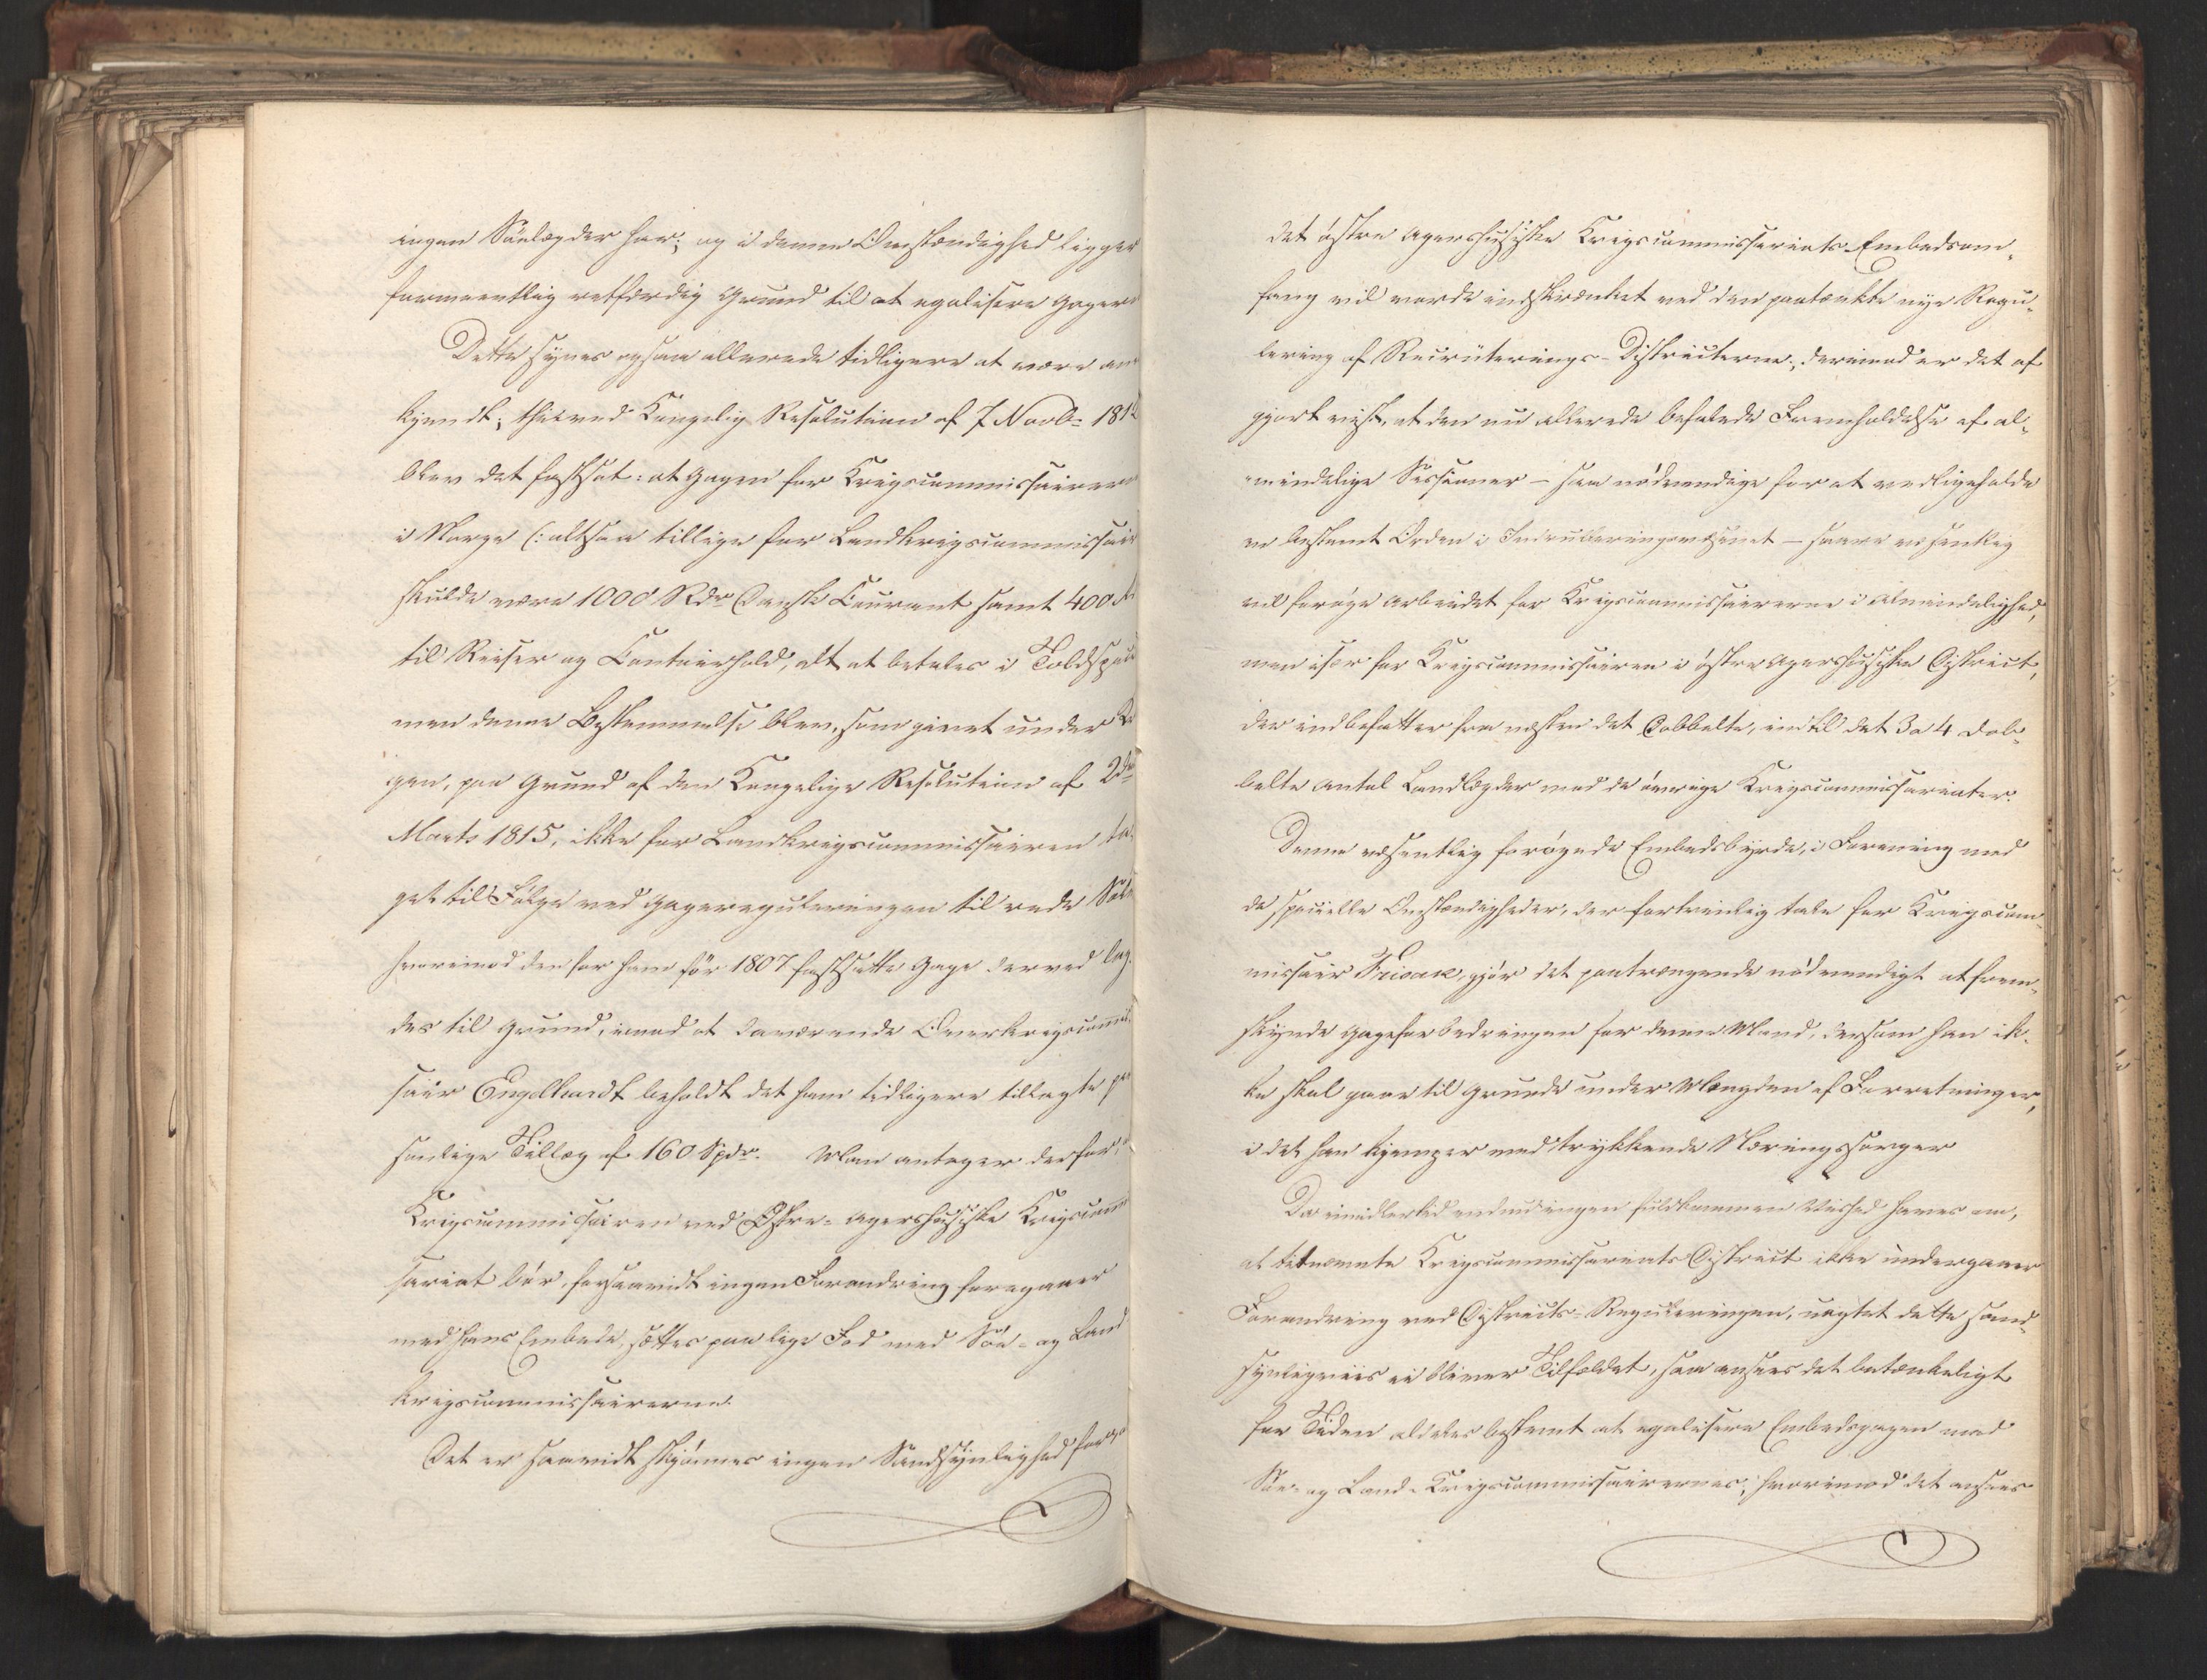 ingen Sölægder har; og i denne Omstændighed ligger
formeentlig retfærdig Grund til at egalisere Gagern
Dette synes ogsaa allerede tidligere at være an
kjendt; thi ved Kongelig Resolution af 7 Novb: 181
blev det fastsat: at Gagen for Krigscommissairern
i Norge (: altsaa tillige for Landkrigscommissair
skulde være 1000 Rdr Dansk Courant samt 400 
til Reiser og Contoirhold, alt at betales i Toldspec
men denne Bestemmelse blev, som givet under 
gen, paa Grund af den Kongelige Resolution af 2den
Marts 1815, ikke for Landkrigscommissairen ta-
get til Følge ved Gagereguleringen til rede Sølv
hvorimod den for ham før 1807 fastsatte Gage derved lag-
des til Grund, imod at daværende Overkrigscommis-
sair Engelhardt beholdt det ham tidligere tillagte per
sonlige Tillæg af 160 Spdr. Man antager derfor, 
Krigscommissairen ved Østre-Agershusiske Krigscomm
sariat bør, forsaavidt ingen Forandring foregaaer
med hans Embede, sættes paa lige Fod med Söe- og Land
krigscommissairerne.
Det er saavidt skjønnes ingen Sandsynlighed for, 
det østre Agershusiske Krigscommissariats Embedsom-
fang vil vorde indskrænket ved den paatænkte nye Regu-
lering af Recruterings-Districterne; derimod er det af
gjort vist, at den nu allerede befalede Fremholdelse af al-
mindelige Sessioner – som nødvendige for at vedligeholde
en bestemt Orden i Indrulleringsvæsenet – saare væsentlig
vil forøge Arbeidet for Krigscommissairerne i Almindelighed,
men især for Krigscommissairen i østre Agershusiske District,
der indbefatter fra næsten det Dobbelte, indtil det 3 a 4 dob-
belte Antal Landlægder mod de øvrige Krigscommissariater.
Denne væsentlig forøgede Embedsbyrde, i Forening med
de specielle Omstændigheder, der fortrinlig tale for Krigscom-
missair Frisak, gjør det paatrængende nødvendigt at frem-
skynde Gageforbedringen for denne Mand, dersom han ik-
ke skal gaae til Grunde under Mængden af Forretninger,
i det han kjemper med trykkende Næringssorger
Da imidlertid endnu ingen fuldkommen Vished haves om,
at bemeldte Krigscommissariats District ikke undergaaer
Forandring ved Districts-Reguleringen, uagtet dette sand-
synligviis ei bliver Tilfældet, saa ansees det betænkeligt
for Tiden aldeles bestemt at egalisere Embedsgagen med
Söe- og Land-Krigscommissairernes; hvorimod det ansees